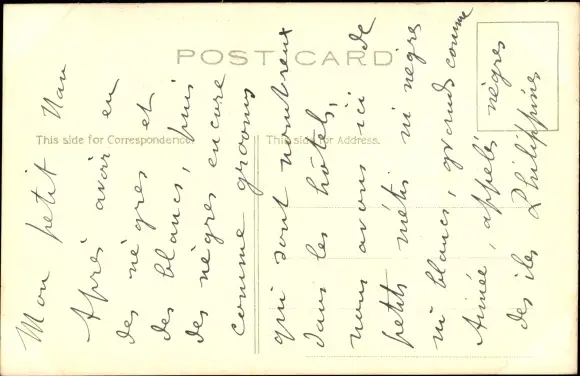 POST CARD
This side for Correspondence.
This side for Address.
Mon petit Nau
Après avoir eu
des nègres et
des blancs, puis
des nègres encore
comme grooms
qui sont nombreux
dans les hôtels,
nous avons ici de
petits métis ni nègres
ni blancs, grands comme
Aimée, appelés nègres
des îles Philippines